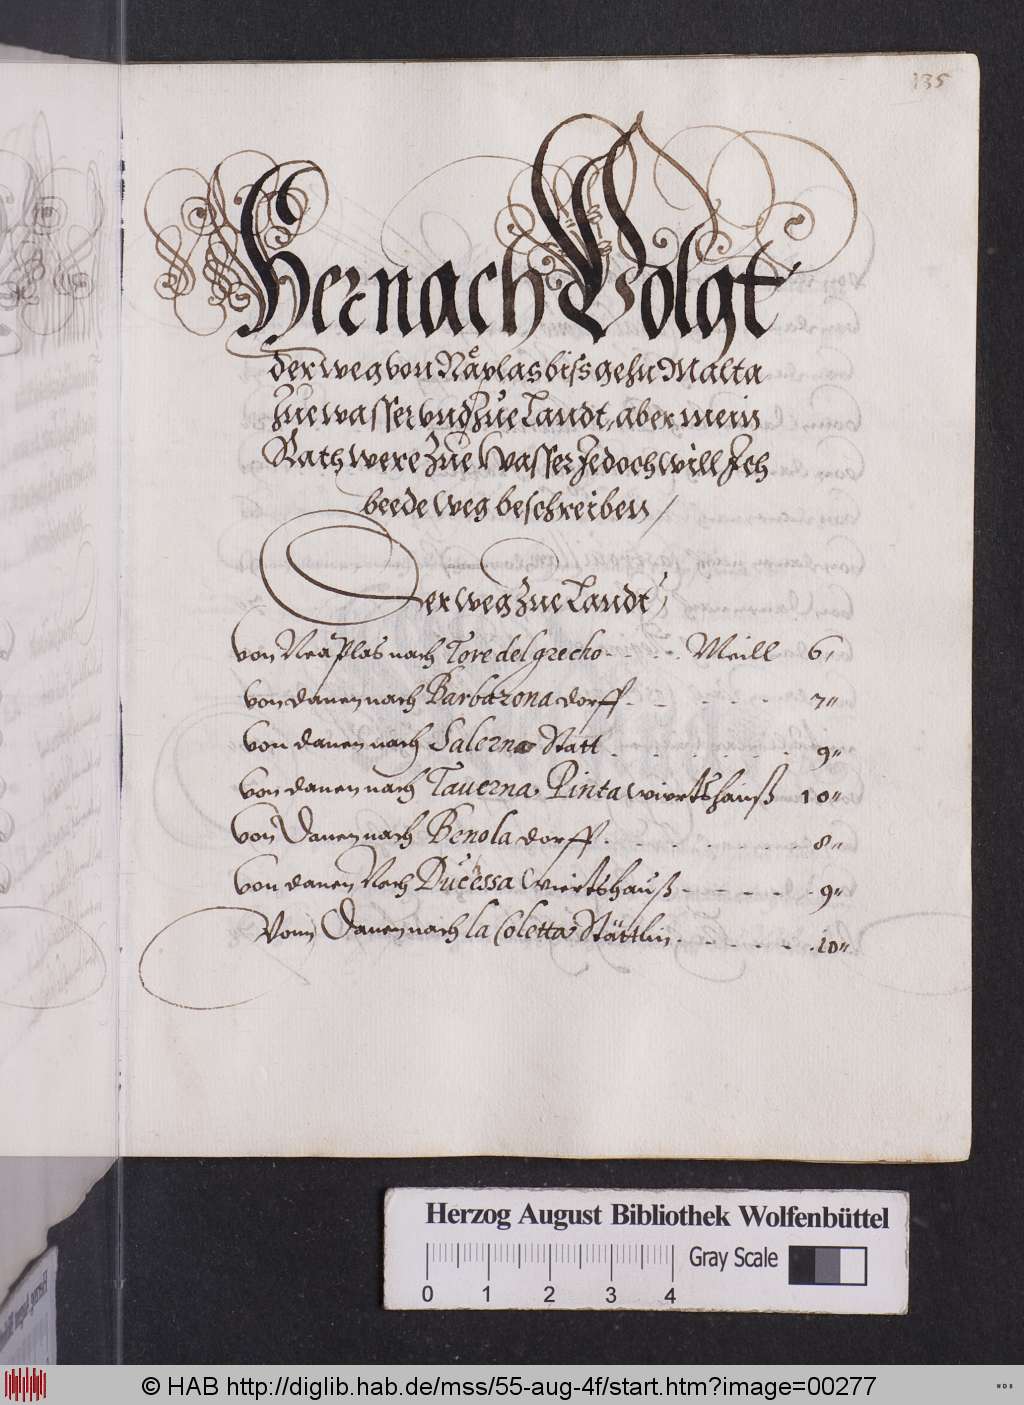 135
Hernach Volgt
der weg von Näplas biss gehn Malta
Zue wasser vnd Zue Landt, aber mein
Rath were Zue Wasser Jedoch will Jch
beede weg beschreiben /
Der weg Zue Landt /
von Neaplas nach Tore del grecho . . . . Meill 6 ,
von danen nach Barbazona dorff . . . . . 7 "
von danen nach Salerno Statt . . . . . 9 "
von danen nach Tauerna . Pinta wiertshauß 10 "
von Danen nach Benola dorff . . . . . . 8 "
von danen Nach Ducessa Wiertshauß . . . . . 9 "
Vonn Danen nach la Coletta Stättlin . . . . . 10 "
Herzog August Bibliothek Wolfenbüttel
Gray Scale
0 1 2 3 4
© HAB http://diglib.hab.de/mss/55-aug-4f/start.htm?image=00277